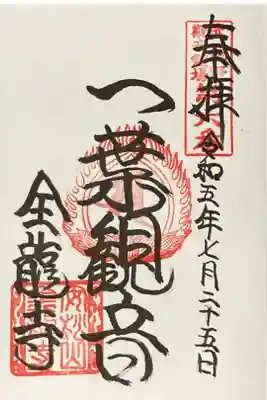 奉拝
令和五年七月二十五日
一葉観音
金龍寺